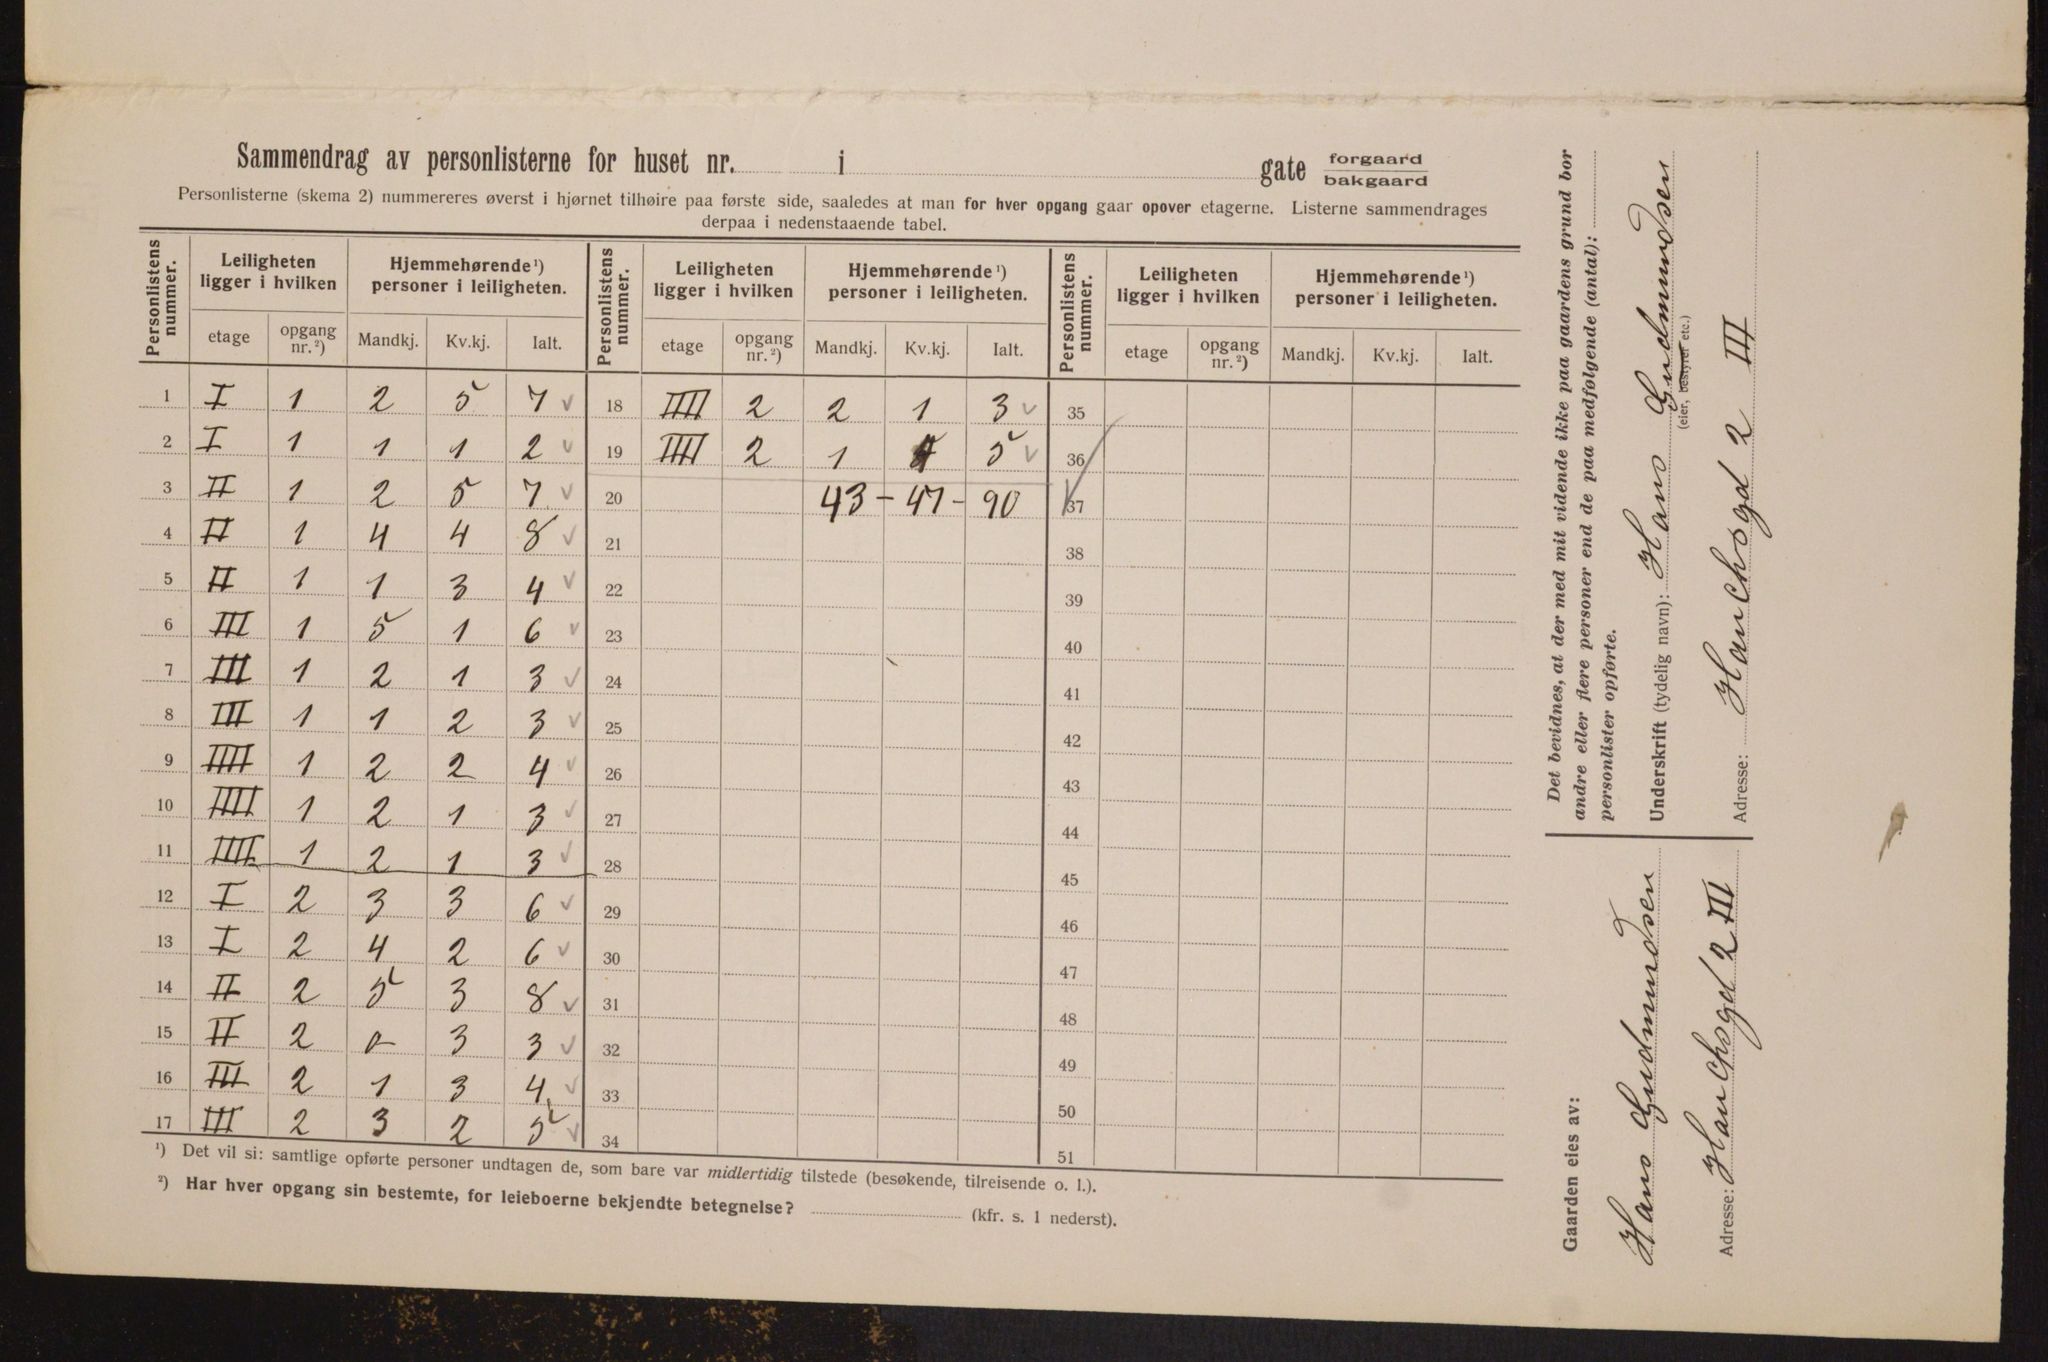 Sammendrag av personlisterne for huset nr. i gate forgaard bakgaard
Personlisterne (skema 2) nummereres øverst i hjørnet tilhøire paa første side, saaledes at man for hver opgang gaar opover etagerne. Listerne sammendrages
derpaa i nedenstaaende tabel.
Personlistens nummer. Leiligheten ligger i hvilken Hjemmehørende ¹) personer i leiligheten. Personlistens nummer. Leiligheten ligger i hvilken Hjemmehørende ¹) personer i leiligheten. Personlistens nummer. Leiligheten ligger i hvilken Hjemmehørende ¹) personer i leiligheten.
etage opgang nr. ²) Mandkj. Kv.kj. Ialt. etage opgang nr. ²) Mandkj. Kv.kj. Ialt. etage opgang nr. ²) Mandkj. Kv.kj. Ialt.
1 I 1 2 5 7 ✓ 18 IIII 2 2 1 3 ✓ 35
2 I 1 1 1 2 ✓ 19 IIII 2 1 4 5 ✓ 36
3 II 1 2 5 7 ✓ 20 43 – 47 – 90 37
4 II 1 4 4 8 ✓ 21 38
5 II 1 1 3 4 ✓ 22 39
6 III 1 5 1 6 ✓ 23 40
7 III 1 2 1 3 ✓ 24 41
8 III 1 1 2 3 ✓ 25 42
9 IIII 1 2 2 4 ✓ 26 43
10 IIII 1 2 1 3 ✓ 27 44
11 IIII 1 2 1 3 ✓ 28 45
12 I 2 3 3 6 ✓ 29 46
13 I 2 4 2 6 ✓ 30 47
14 II 2 5 3 8 ✓ 31 48
15 II 2 0 3 3 ✓ 32 49
16 III 2 1 3 4 ✓ 33 50
17 III 2 3 2 5 ✓ 34 51
¹) Det vil si: samtlige opførte personer undtagen de, som bare var midlertidig tilstede (besøkende, tilreisende o. l.).
²) Har hver opgang sin bestemte, for leieboerne bekjendte betegnelse? (kfr. s. 1 nederst).
Det bevidnes, at der med mit vidende ikke paa gaardens grund bor
andre eller flere personer end de paa medfølgende (antal):
personlister opførte.
Underskrift (tydelig navn): Hans Gudmundsen
(eier, bestyrer etc.)
Adresse: Hauchsgd 2 III
Gaarden eies av:
Hans Gudmundsen
Adresse: Hauchsgd 2 III